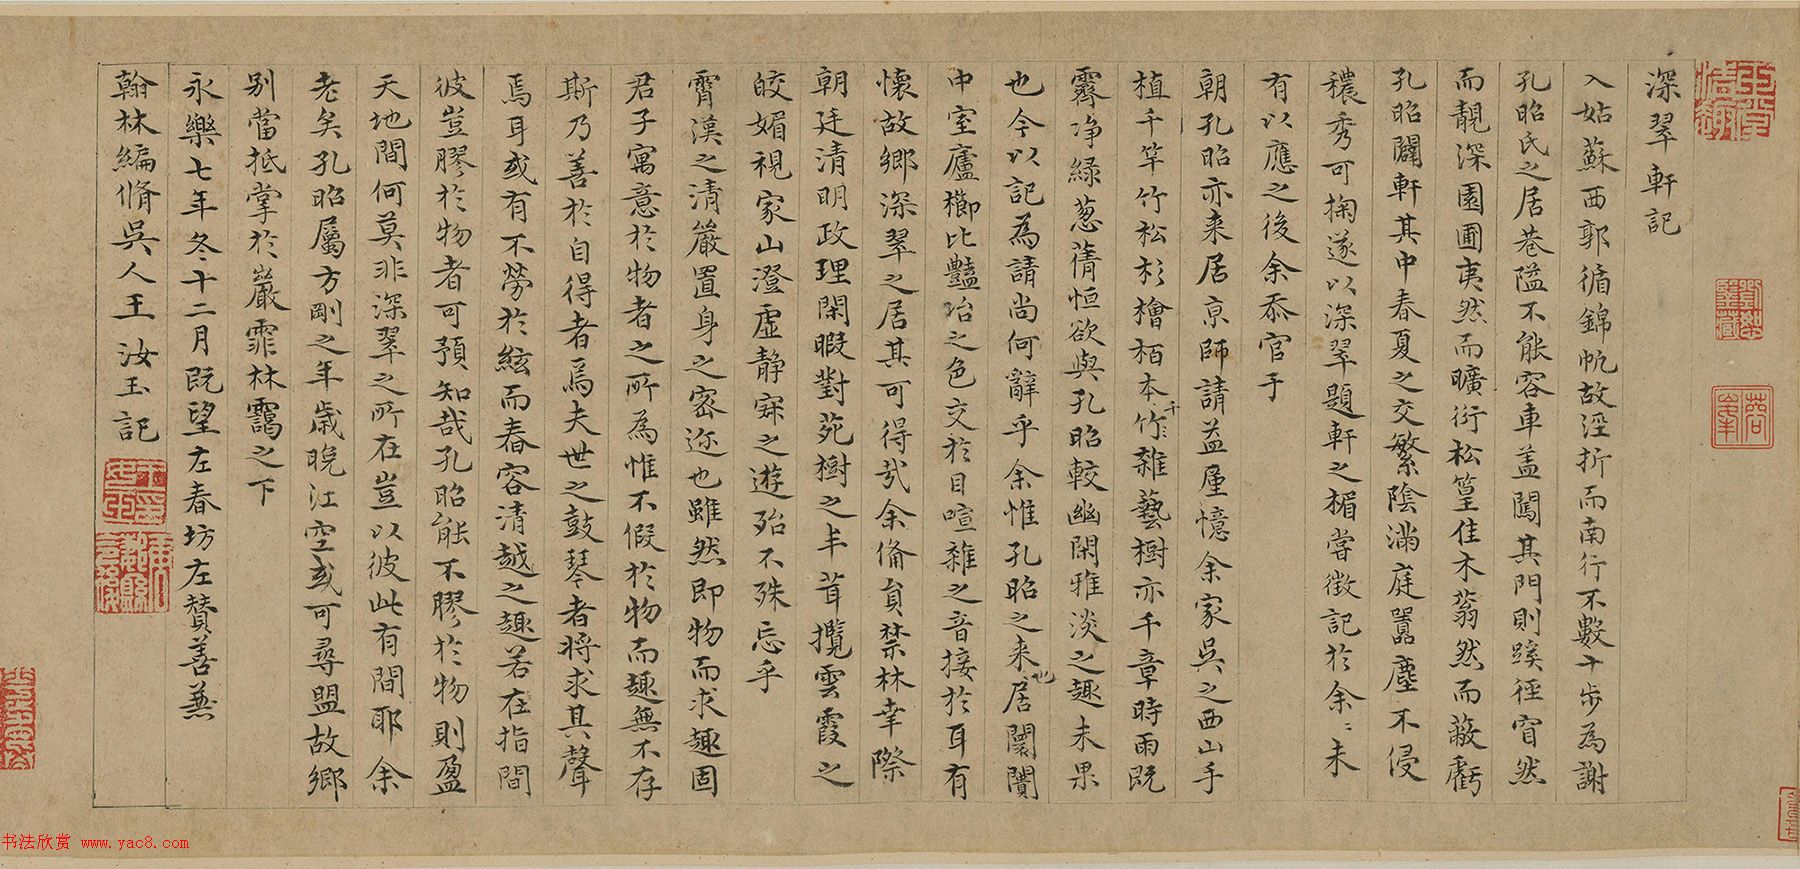 深翠軒記
入姑蘇西郭循錦帆故涇折而南行不數十步為謝
孔昭氏之居巷隘不能容車盖闖其門則蹊徑窅然
而靚深園圃夷然而曠衍松篁佳木蓊然而蔽虧
孔昭闢軒其中春夏之交繁陰滿庭囂塵不侵
穠秀可掬遂以深翠題軒之楣嘗徵記於余﹦未
有以應之後余忝官于
朝孔昭亦来居京師請益廑憶余家吳之西山手
植千竿竹松杉檜栢本竹﹦雜藝樹亦千章時雨既
千
霽净緑葱蒨恒欲與孔昭較幽閑雅淡之趣未果
也今以記為請尚何辭乎余惟孔昭之来居闤闠
也
中室廬櫛比豔冶之色交於目喧雜之音接於耳有
懷故鄉深翠之居其可得㢤余俻員禁林幸際
朝廷清明政理閑暇對苑樹之丰茸攬雲霞之
皎媚視家山澄虛静寐之遊殆不殊忘乎
霄漢之清嚴置身之密迩也雖然即物而求趣固
君子寓意於物者之所為惟不假於物而趣無不存
斯乃善於自得者焉夫世之鼓琴者将求其聲
焉耳或有不勞於絃而舂容清越之趣若在指間
彼豈膠於物者可預知哉孔昭能不膠於物則盈
天地間何莫非深翠之所在豈以彼此有間耶余
老矣孔昭屬方剛之年歲晚江空或可尋盟故鄉
别當抵掌於巖霏林靄之下
永樂七年冬十二月既望左春坊左贊善兼
翰林編脩吳人王汝玉記
书法欣赏 www.yac8.com